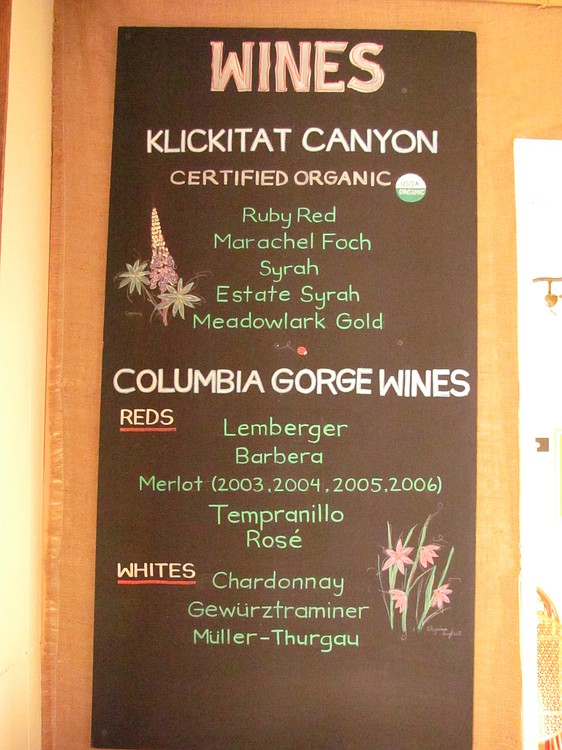 WINES
KLICKITAT CANYON
CERTIFIED ORGANIC
USDA
ORGANIC
Ruby Red
Marachel Foch
Syrah
Estate Syrah
Meadowlark Gold
COLUMBIA GORGE WINES
REDS
Lemberger
Barbera
Merlot (2003,2004,2005,2006)
Tempranillo
Rosé
WHITES
Chardonnay
Gewürztraminer
Müller-Thurgau